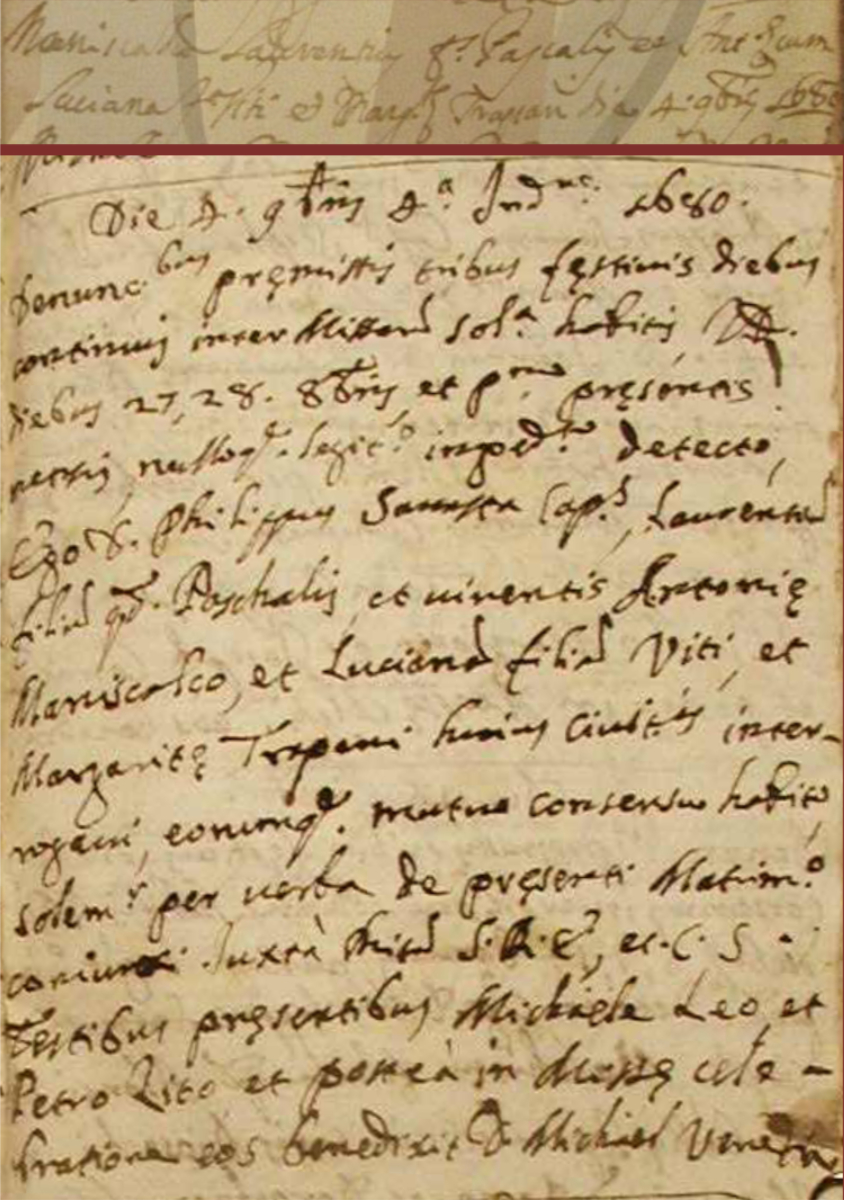 Laurentiu f. q. Pascalis et Ant. cum
Luciana Viti et Marg. Trapani die 4. 9bris 1680
Die 4. 9bris 4.a Ind.ne 1680.
Denunc.bus pręmissis tribus fęstiuis diebus
continuis inter Missarũ sol.a habitis
diebus 27, 28. 8bris, et p.mo pręsentis
nulloq. legit.o imped.to detecto,
Ego D. Philippus Cap.s, Laurentiũ
filiũ qd. Paschalis, et uiuentis Antonię
Maniscalco, et Lucianã filiã Viti, et
Margaritę Trapani huius Ciuit.is inter-
rogaui, eorumq. mutuo consensu habito,
solem.r per uerba de pręsenti Matrim.o
coniunxi Juxtà Ritũ S.R.E, et C. S.
Testibus pręsentibus Michaele Leo, et
Petro Lito et posteà in Missę cele-
bratione eos benedixit D. Michael